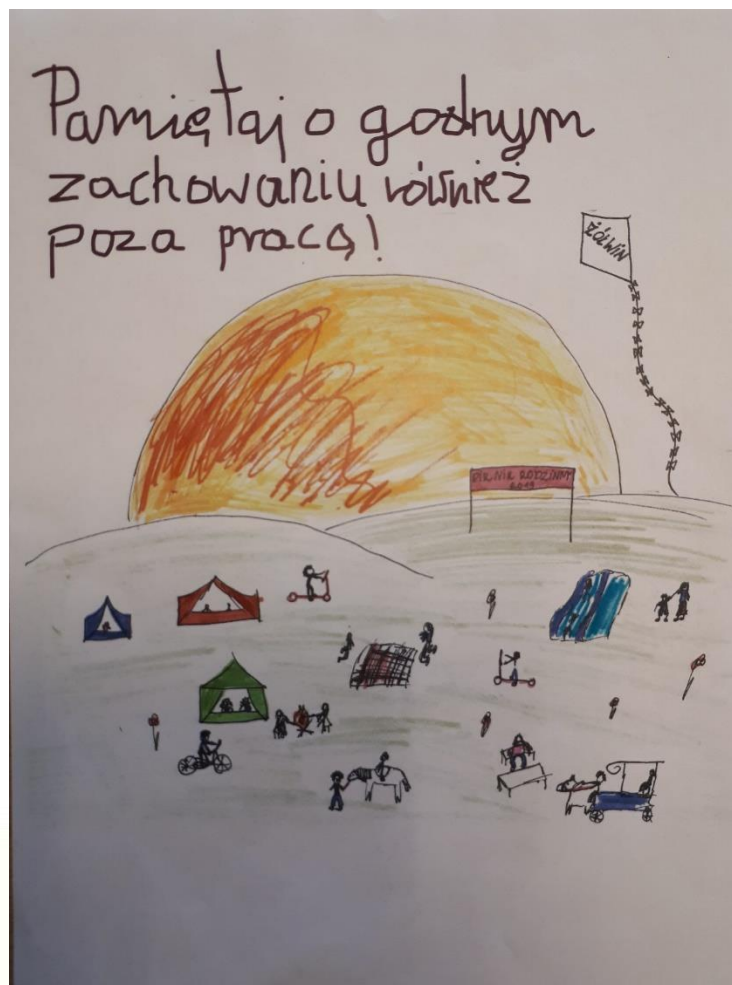 Pamiętaj o godnym
zachowaniu również
poza pracą!
ŻÓŁWIN
PIKNIK RODZINNY
2019